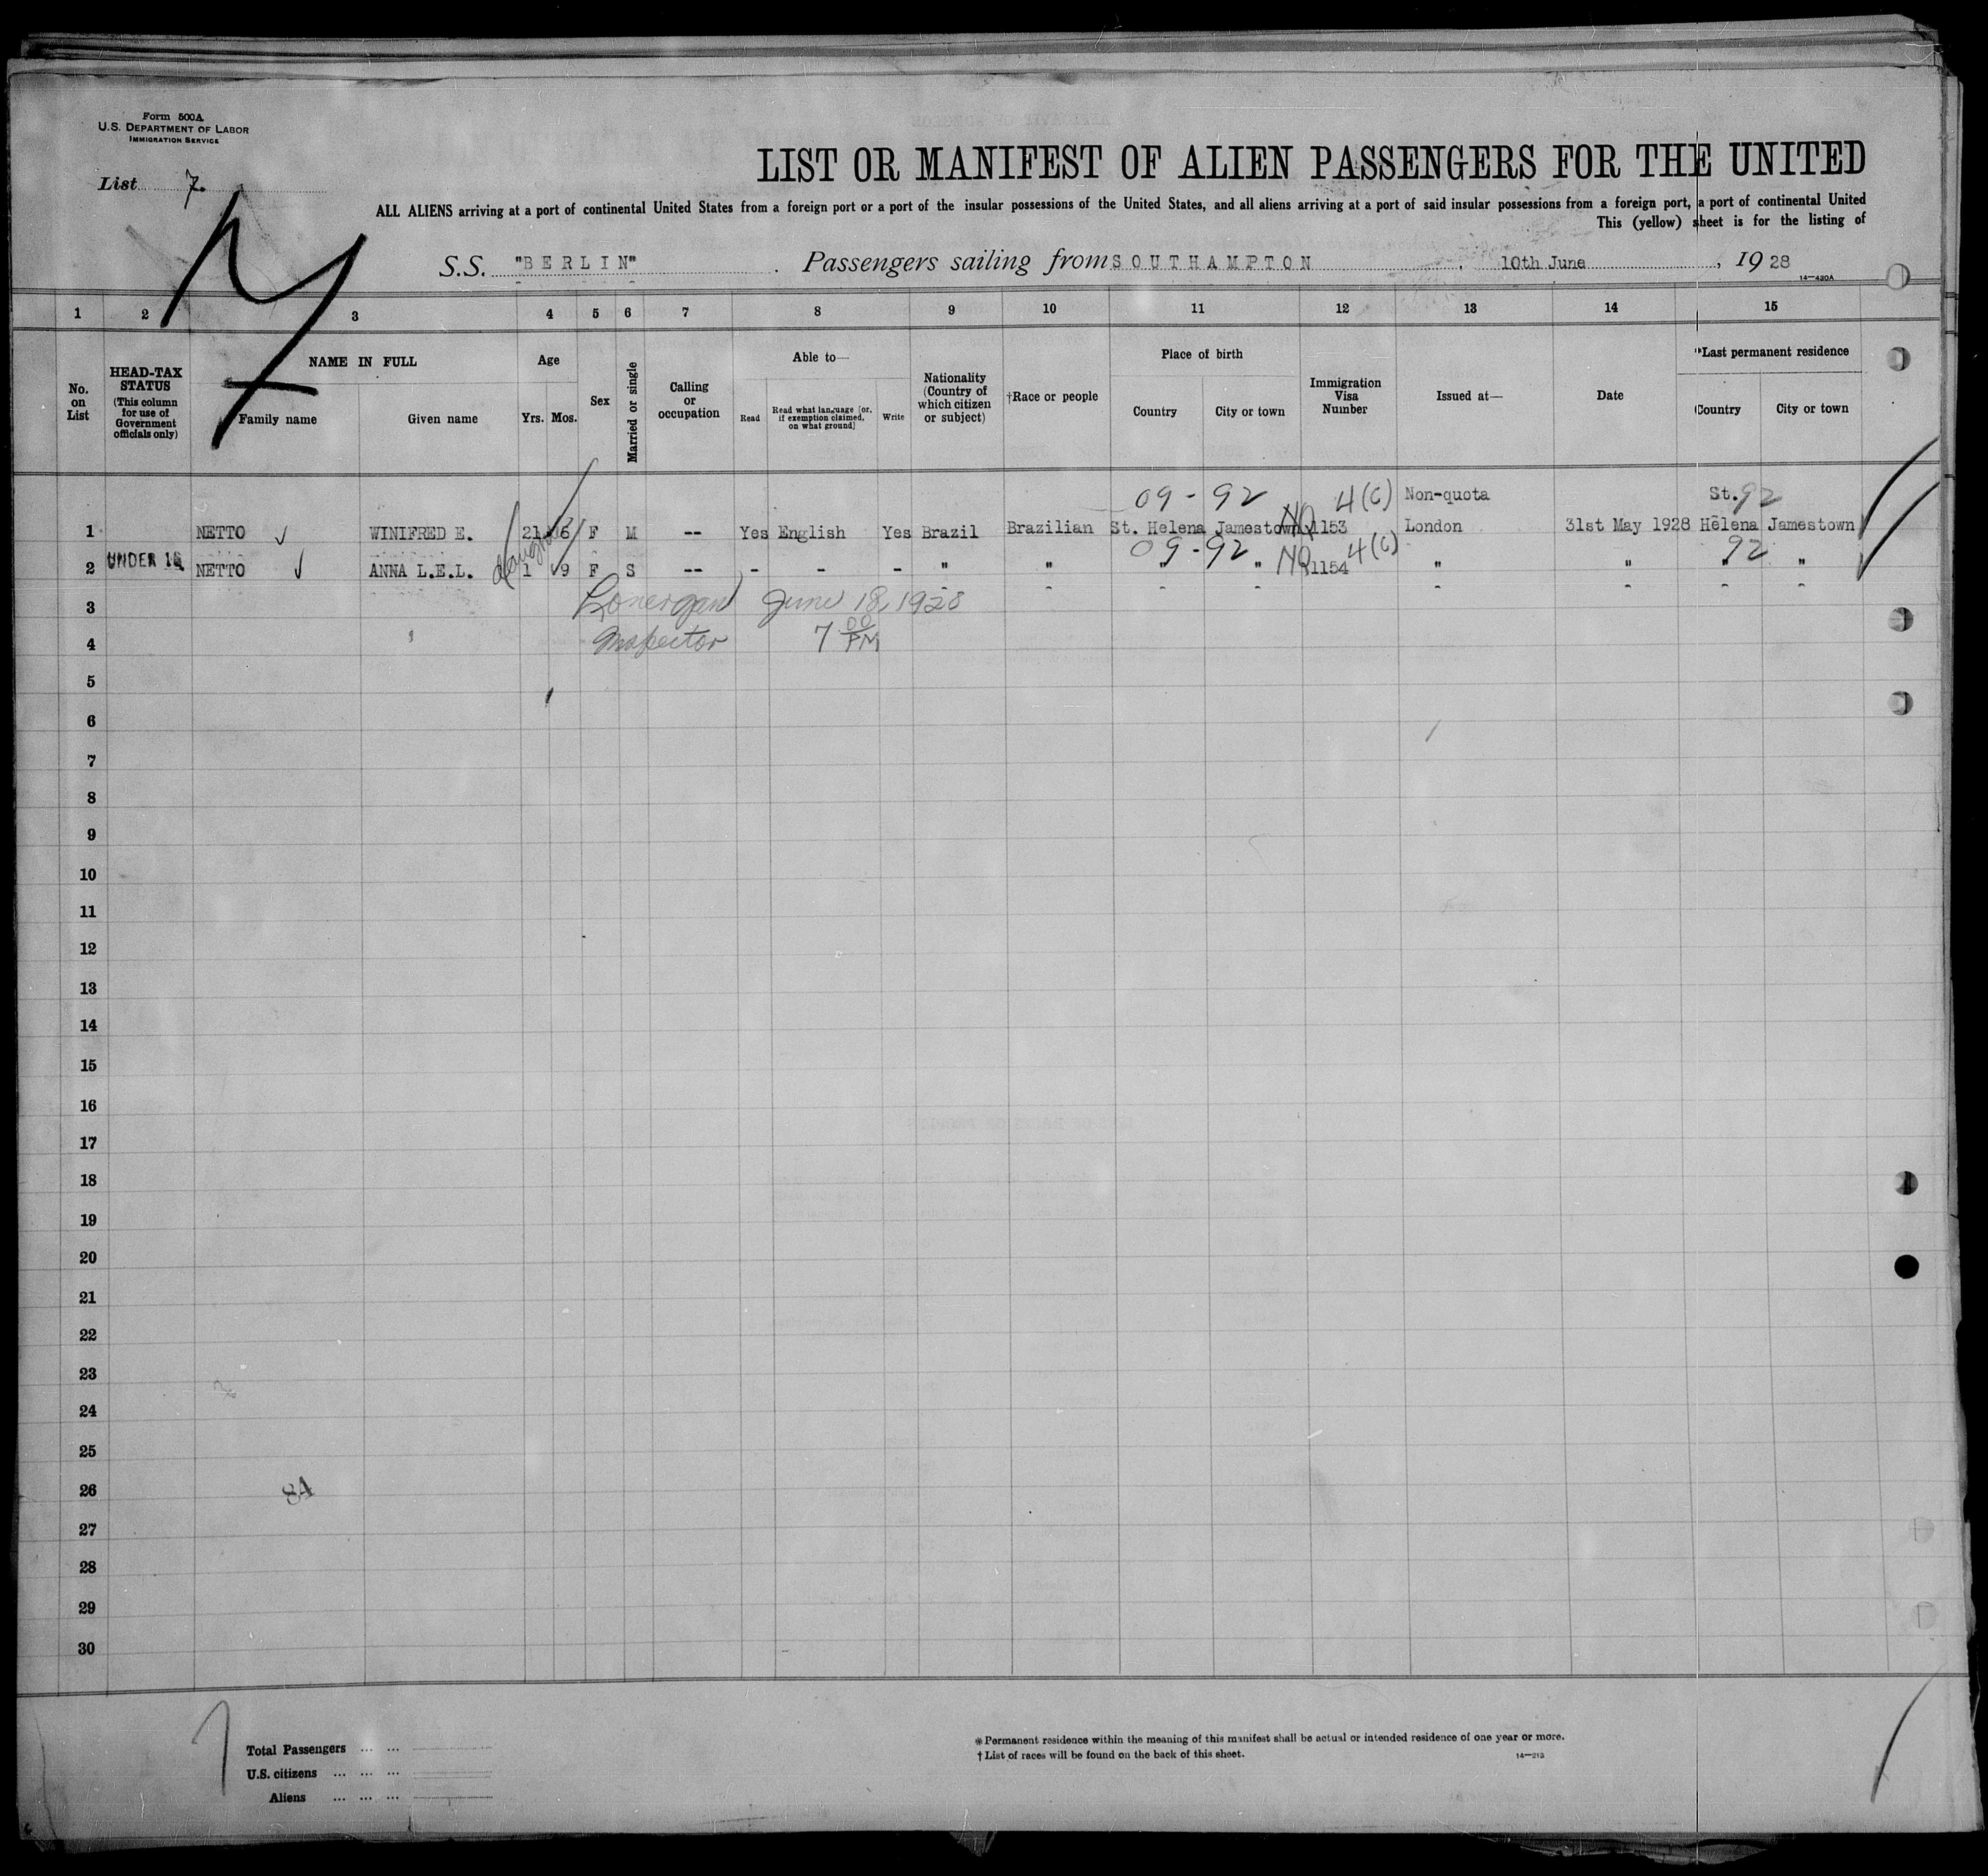 Form 500A
U.S. DEPARTMENT OF LABOR
IMMIGRATION SERVICE
List 7.
LIST OR MANIFEST OF ALIEN PASSENGERS FOR THE UNITED
ALL ALIENS arriving at a port of continental United States from a foreign port or a port of the insular possessions of the United States, and all aliens arriving at a port of said insular possessions from a foreign port, a port of continental United
This (yellow) sheet is for the listing of
S.S. "BERLIN". Passengers sailing from SOUTHAMPTON, 10th June, 1928
14—430A
1 2 3 4 5 6 7 8 9 10 11 12 13 14 15
No. on List
HEAD-TAX STATUS
(This column for use of Government officials only)
NAME IN FULL
Family name Given name
Age
Yrs. Mos.
Sex
Married or single
Calling or occupation
Able to—
Read Read what language [or, if exemption claimed, on what ground] Write
Nationality (Country of which citizen or subject)
†Race or people
Place of birth
Country City or town
Immigration Visa Number
Issued at—
Date
*Last permanent residence
Country City or town
09-92 4(C) Non-quota St. 92
1 NETTO WINIFRED E. 21 6 F M -- Yes English Yes Brazil Brazilian St. Helena Jamestown NQ 1153 London 31st May 1928 Helena Jamestown
daughter
09-92 4(C) 92
2 UNDER 16 NETTO ANNA L.E.L. 1 9 F S -- - - - " " " " NQ 1154 " " " "
3 Lonergan June 18, 1928
4 Inspector 7 00 PM
5
6
7
8
9
10
11
12
13
14
15
16
17
18
19
20
21
22
23
24
25
26 84
27
28
29
30
Total Passengers ... ...
U.S. citizens ... ... ...
Aliens ... ... ...
* Permanent residence within the meaning of this manifest shall be actual or intended residence of one year or more.
† List of races will be found on the back of this sheet.
14—213